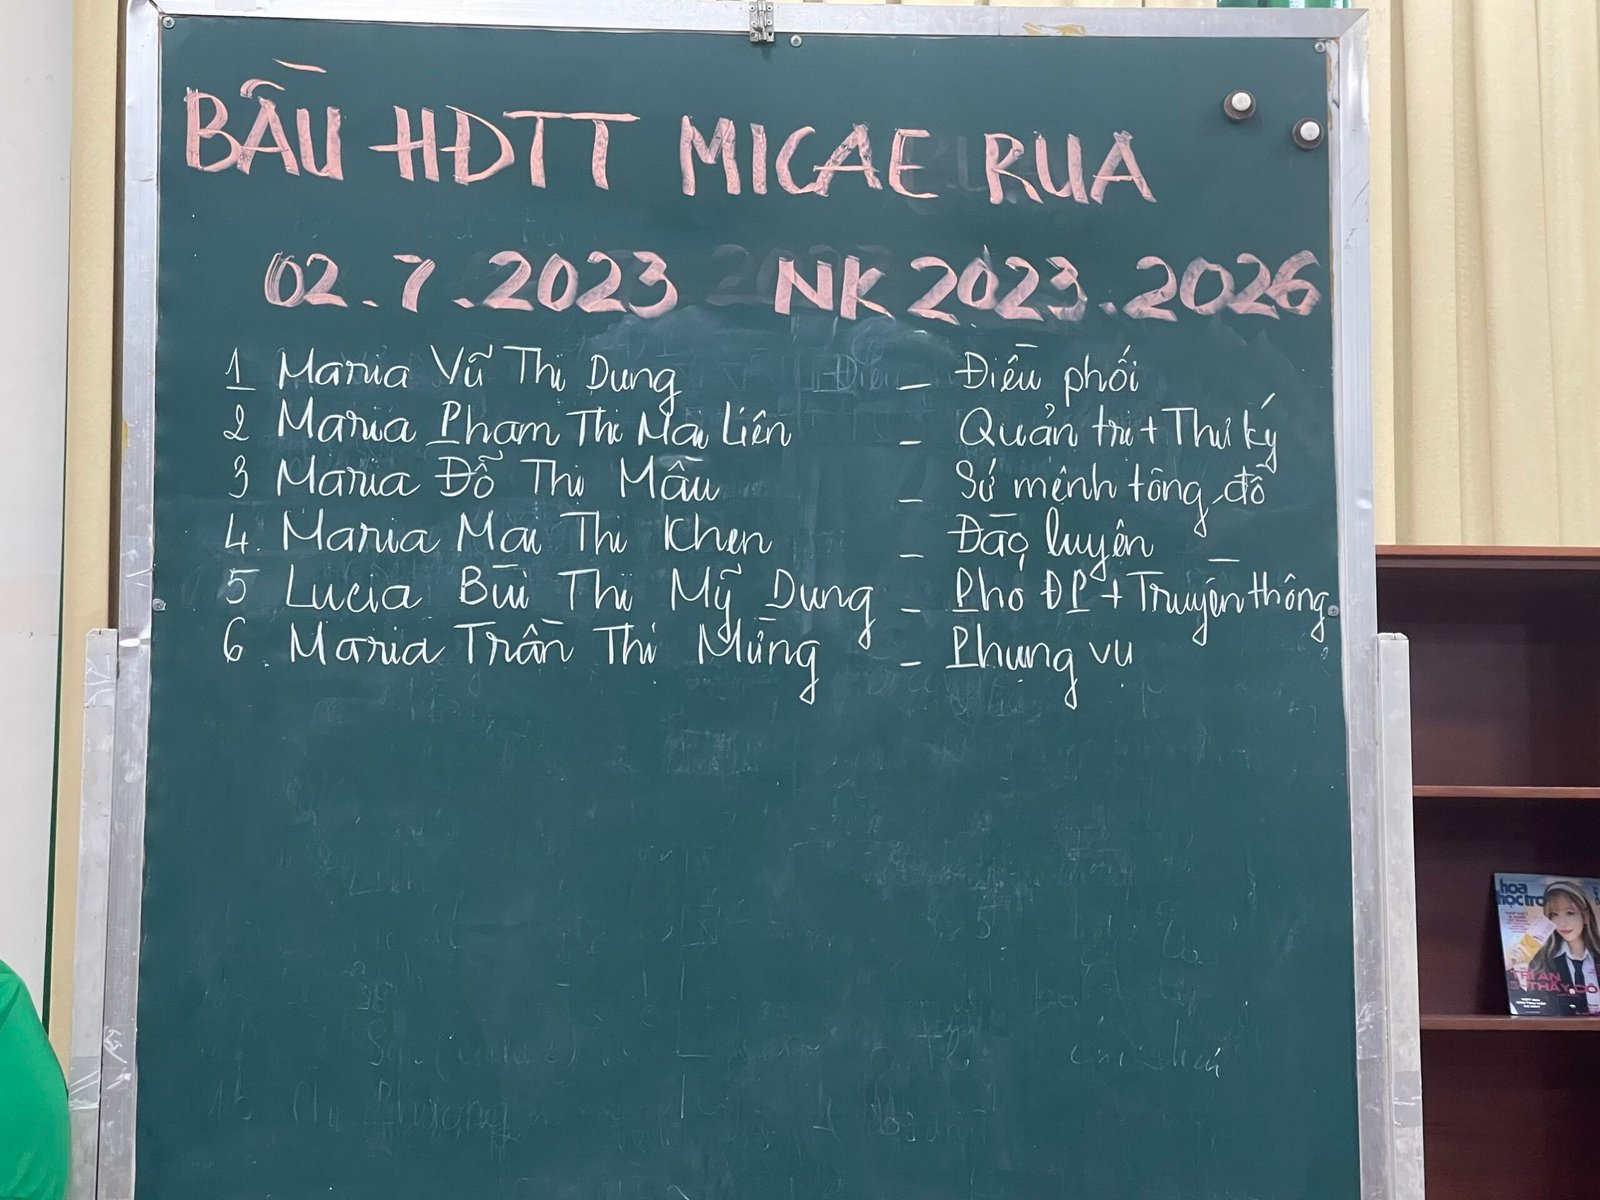 BẦU HĐTT MICAE RUA
02.7.2023 NK 2023.2026
1 Maria Vũ Thị Dung - Điều phối
2 Maria Phạm Thị Mai Liên - Quản trị + Thư ký
3 Maria Đỗ Thị Mầu - Sứ mệnh tông đồ
4. Maria Mai Thị Khen - Đào luyện
5 Lucia Bùi Thị Mỹ Dung - Phó ĐP + Truyền thông
6. Maria Trần Thị Mừng - Phụng vụ
hoa
học trò
TRI ÂN
THẦY CÔ